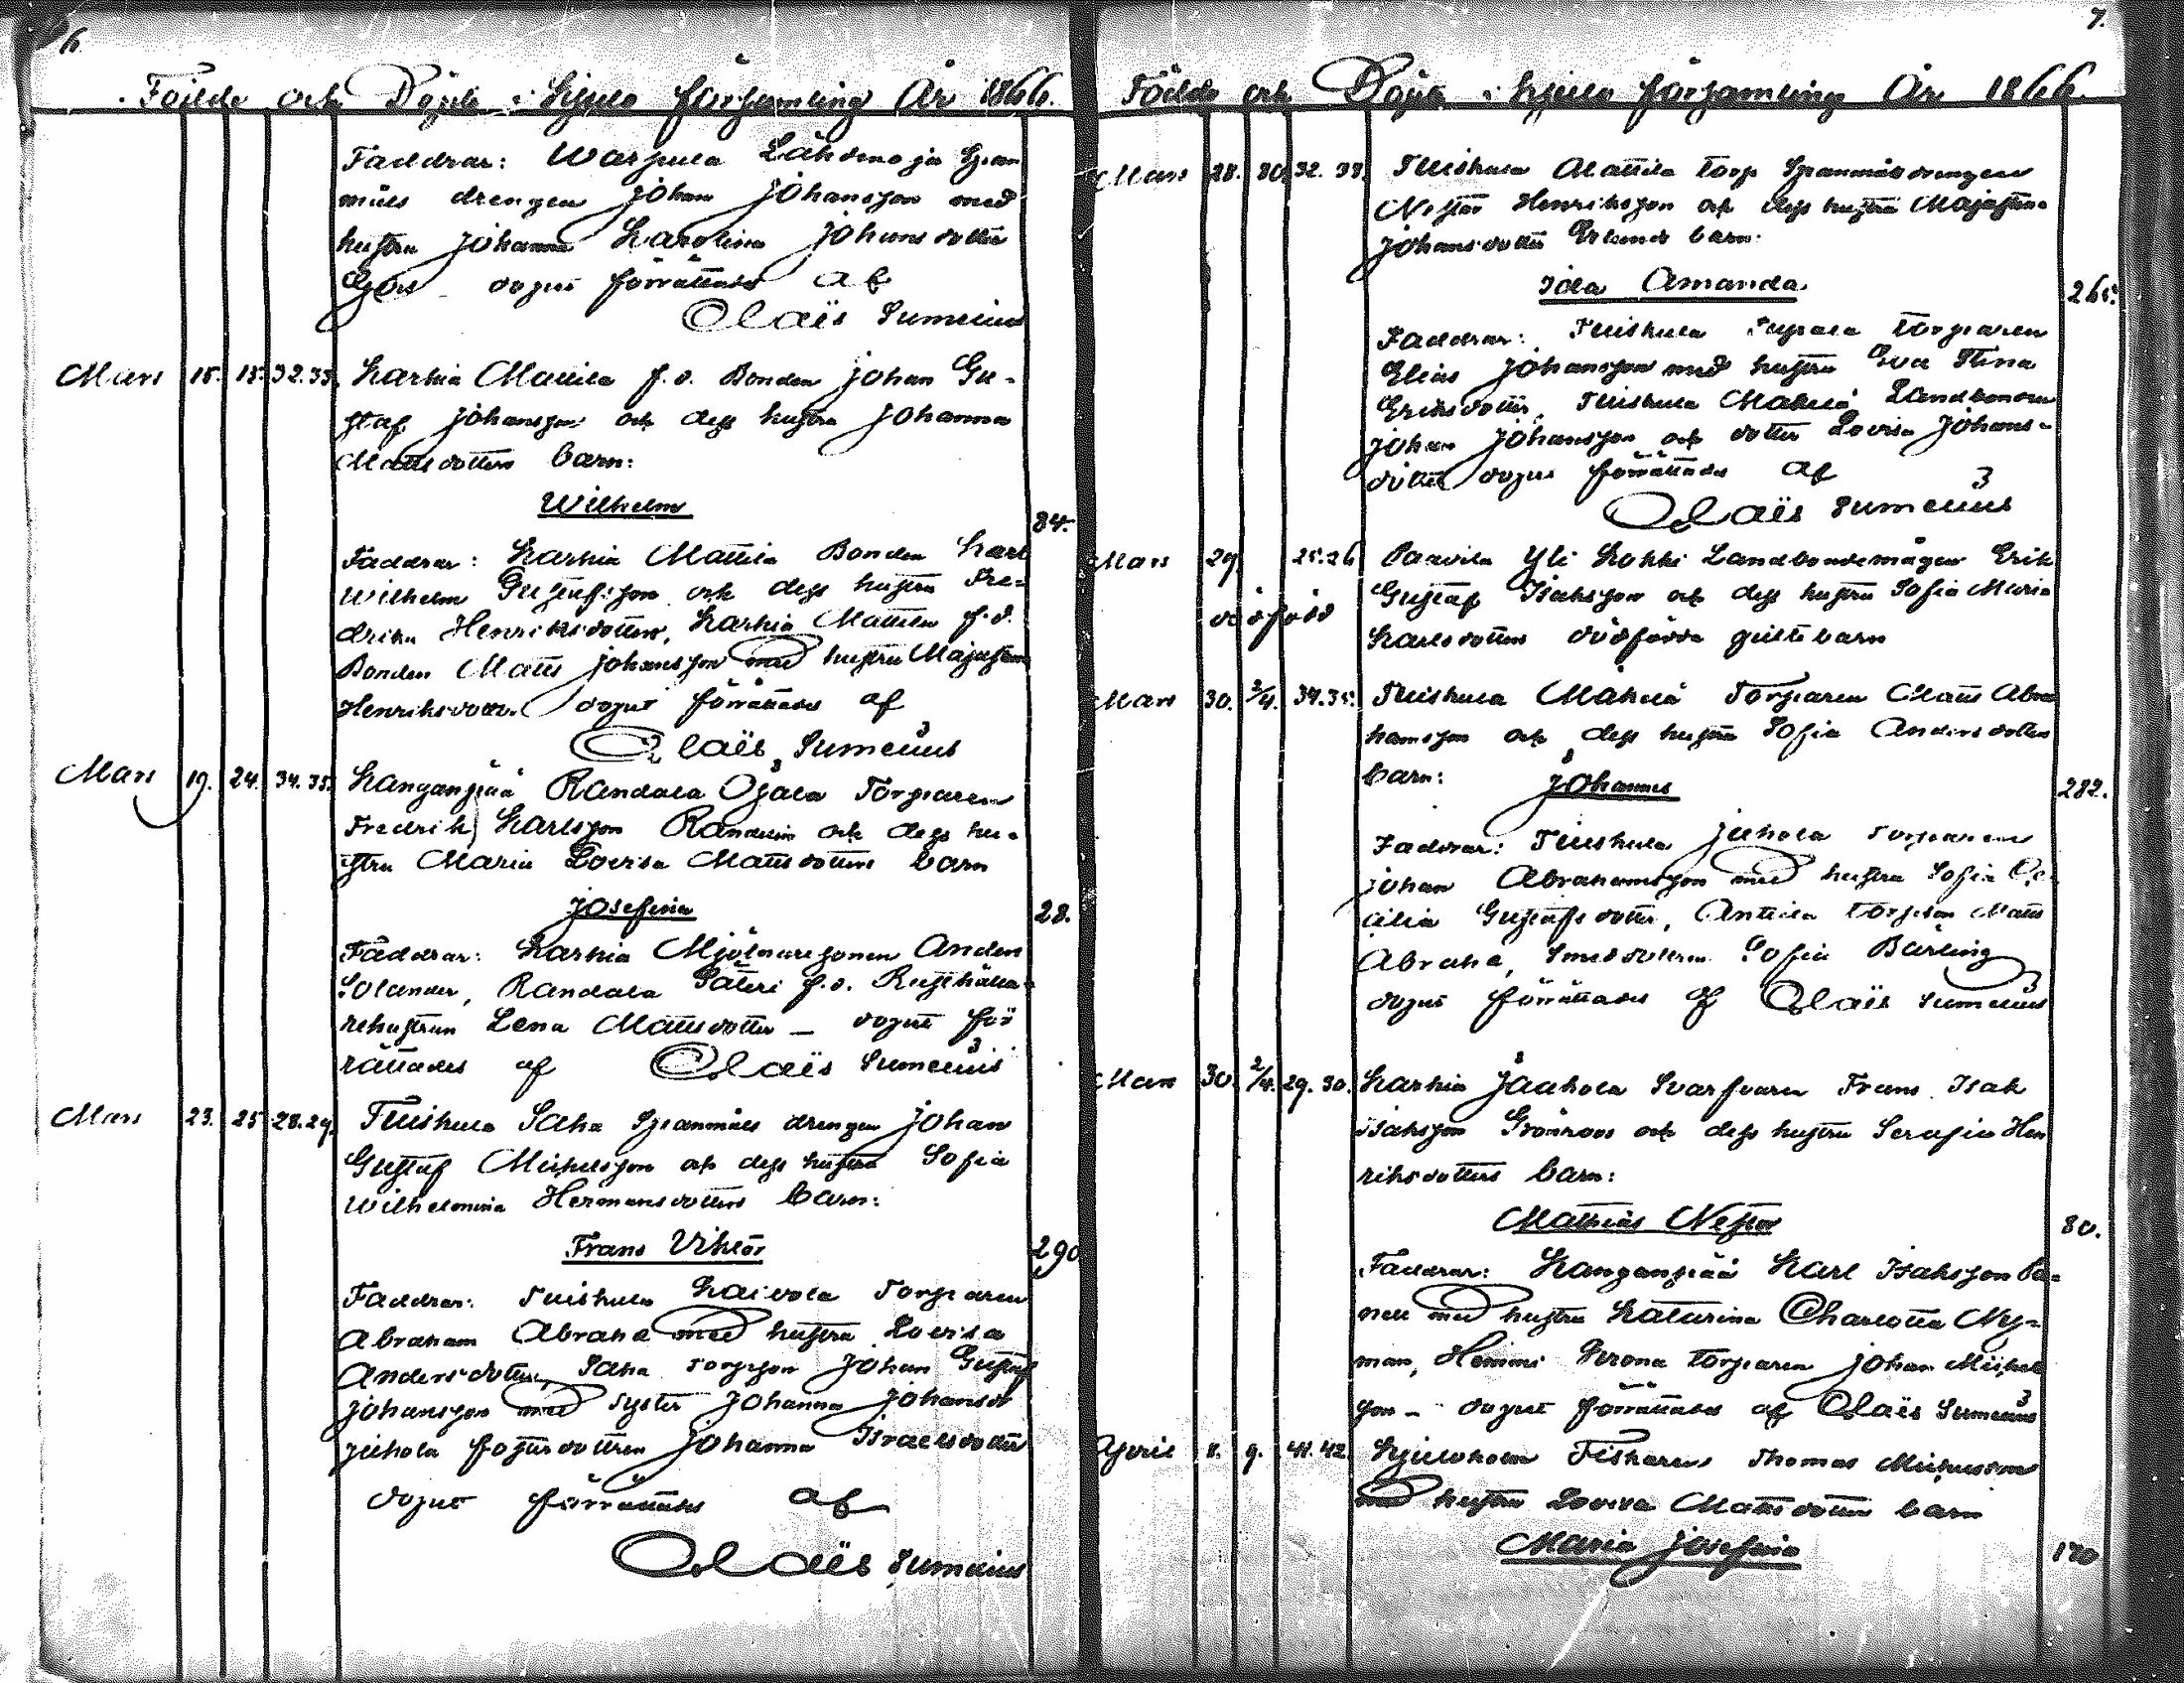 6.
Födde och Döpte i Kjulo församling År 1866.
Faddrar: Warpula Lähdenoja Span
måls drengen Johan Johansson med
hustru Johanna Karolina Johansdotter
dopet förrättades af
Olaës Sumelius
Mars 15. 18. 32.33. Karhia Mattila f.d. Bonden Johan Gu-
staf Johansson och dess hustru Johanna
Mattsdotters barn:
Wilhelm
84.
Faddrar: Karhia Mattila Bonden Karl
Wilhelm Gustafsson och dess hustru Fre-
drika Henriksdotter, Karhia Mattila f.d.
Bonden Matts Johansson med hustru Majastina
Henriksdotter dopet förrättades af
Olaës Sumelius
Mars 19. 24. 34.35. Kanganpää Randala Ojala Torparen
Fredrik Karlsson Randelin och dess hu-
stru Maria Lovisa Mattsdotters barn
Josefina
28.
Faddrar: Karhia Mjölnaresonen Anders
Solander, Randala Säteri f.d. Rusthålla-
rehustrun Lena Mattsdotter — dopet för
rättades af Olaës Sumelius
Mars 23. 25 28.29. Tuiskula Saha Spanmåls drengen Johan
Gustaf Michelsson och dess hustru Sofia
Wilhelmina Hermansdotters barn:
Frans Viktor
290
Faddrar: Tuiskula Kaivola Torparen
Abraham Abrahs med hustru Lovisa
Andersdotter, Saha torpson Johan Gustaf
Johansson med syster Johanna Johansd
Juhola fosterdottren Johanna Israelsdotter
dopet förrättades af
Olaës Sumelius
7.
Födde och Döpte i Kjulo församling År 1866.
Mars 28. 30. 32.33. Tuiskula Mattila torp Spanmålsdrengen
Nestor Henriksson och dess hustru Majastina
Johansdotter Erlunds barn:
Ida Amanda
265.
Faddrar: Tuiskula Torparen
Elias Johansson med hustru Eva Stina
Eriksdotter, Tuiskula Mäkelä Landbonden
Johan Johansson och dotter Lovisa Johans-
dotter dopet förrättades af
Olaës Sumelius
Mars 29. 25.26 Paavila Yli Kokki Landbondemågen Erik
Gustaf Isaksson och dess hustru Sofia Maria
dödfödd
Karlsdotters dödfödda gultebarn
Mars 30. 2/4. 34.35. Tuiskula Mäkelä Torparen Matts Abra
hamsson och dess hustru Sofia Andersdotters
barn: Johannes
282.
Faddrar: Tuiskula Juhola Torparen
Johan Abrahamsson med hustru Sofia Ce-
cilia Gustafsdotter, Anttila torpson Matts
Abrahs, Smeddottren Sofia Bärling
dopet förrättades af Olaës Sumelius
Mars 30. 2/4. 29.30. Karhia Jaakola Svarfvaren Frans Isak
Isaksson Grönroos och dess hustru Serafia Hen
riksdotters barn:
Mathias Nestor
80.
Faddrar: Kanganpää Karl Isaksson
med hustru Katarina Charlotta Ny-
man, Hemmi Torparen Johan Michels
son — dopet förrättades af Olaës Sumelius
April 8. 9. 41.42. Kjuloholm Fiskaren Thomas Michelsson
med hustru Lovisa Mattsdotters barn
Maria Josefina
170